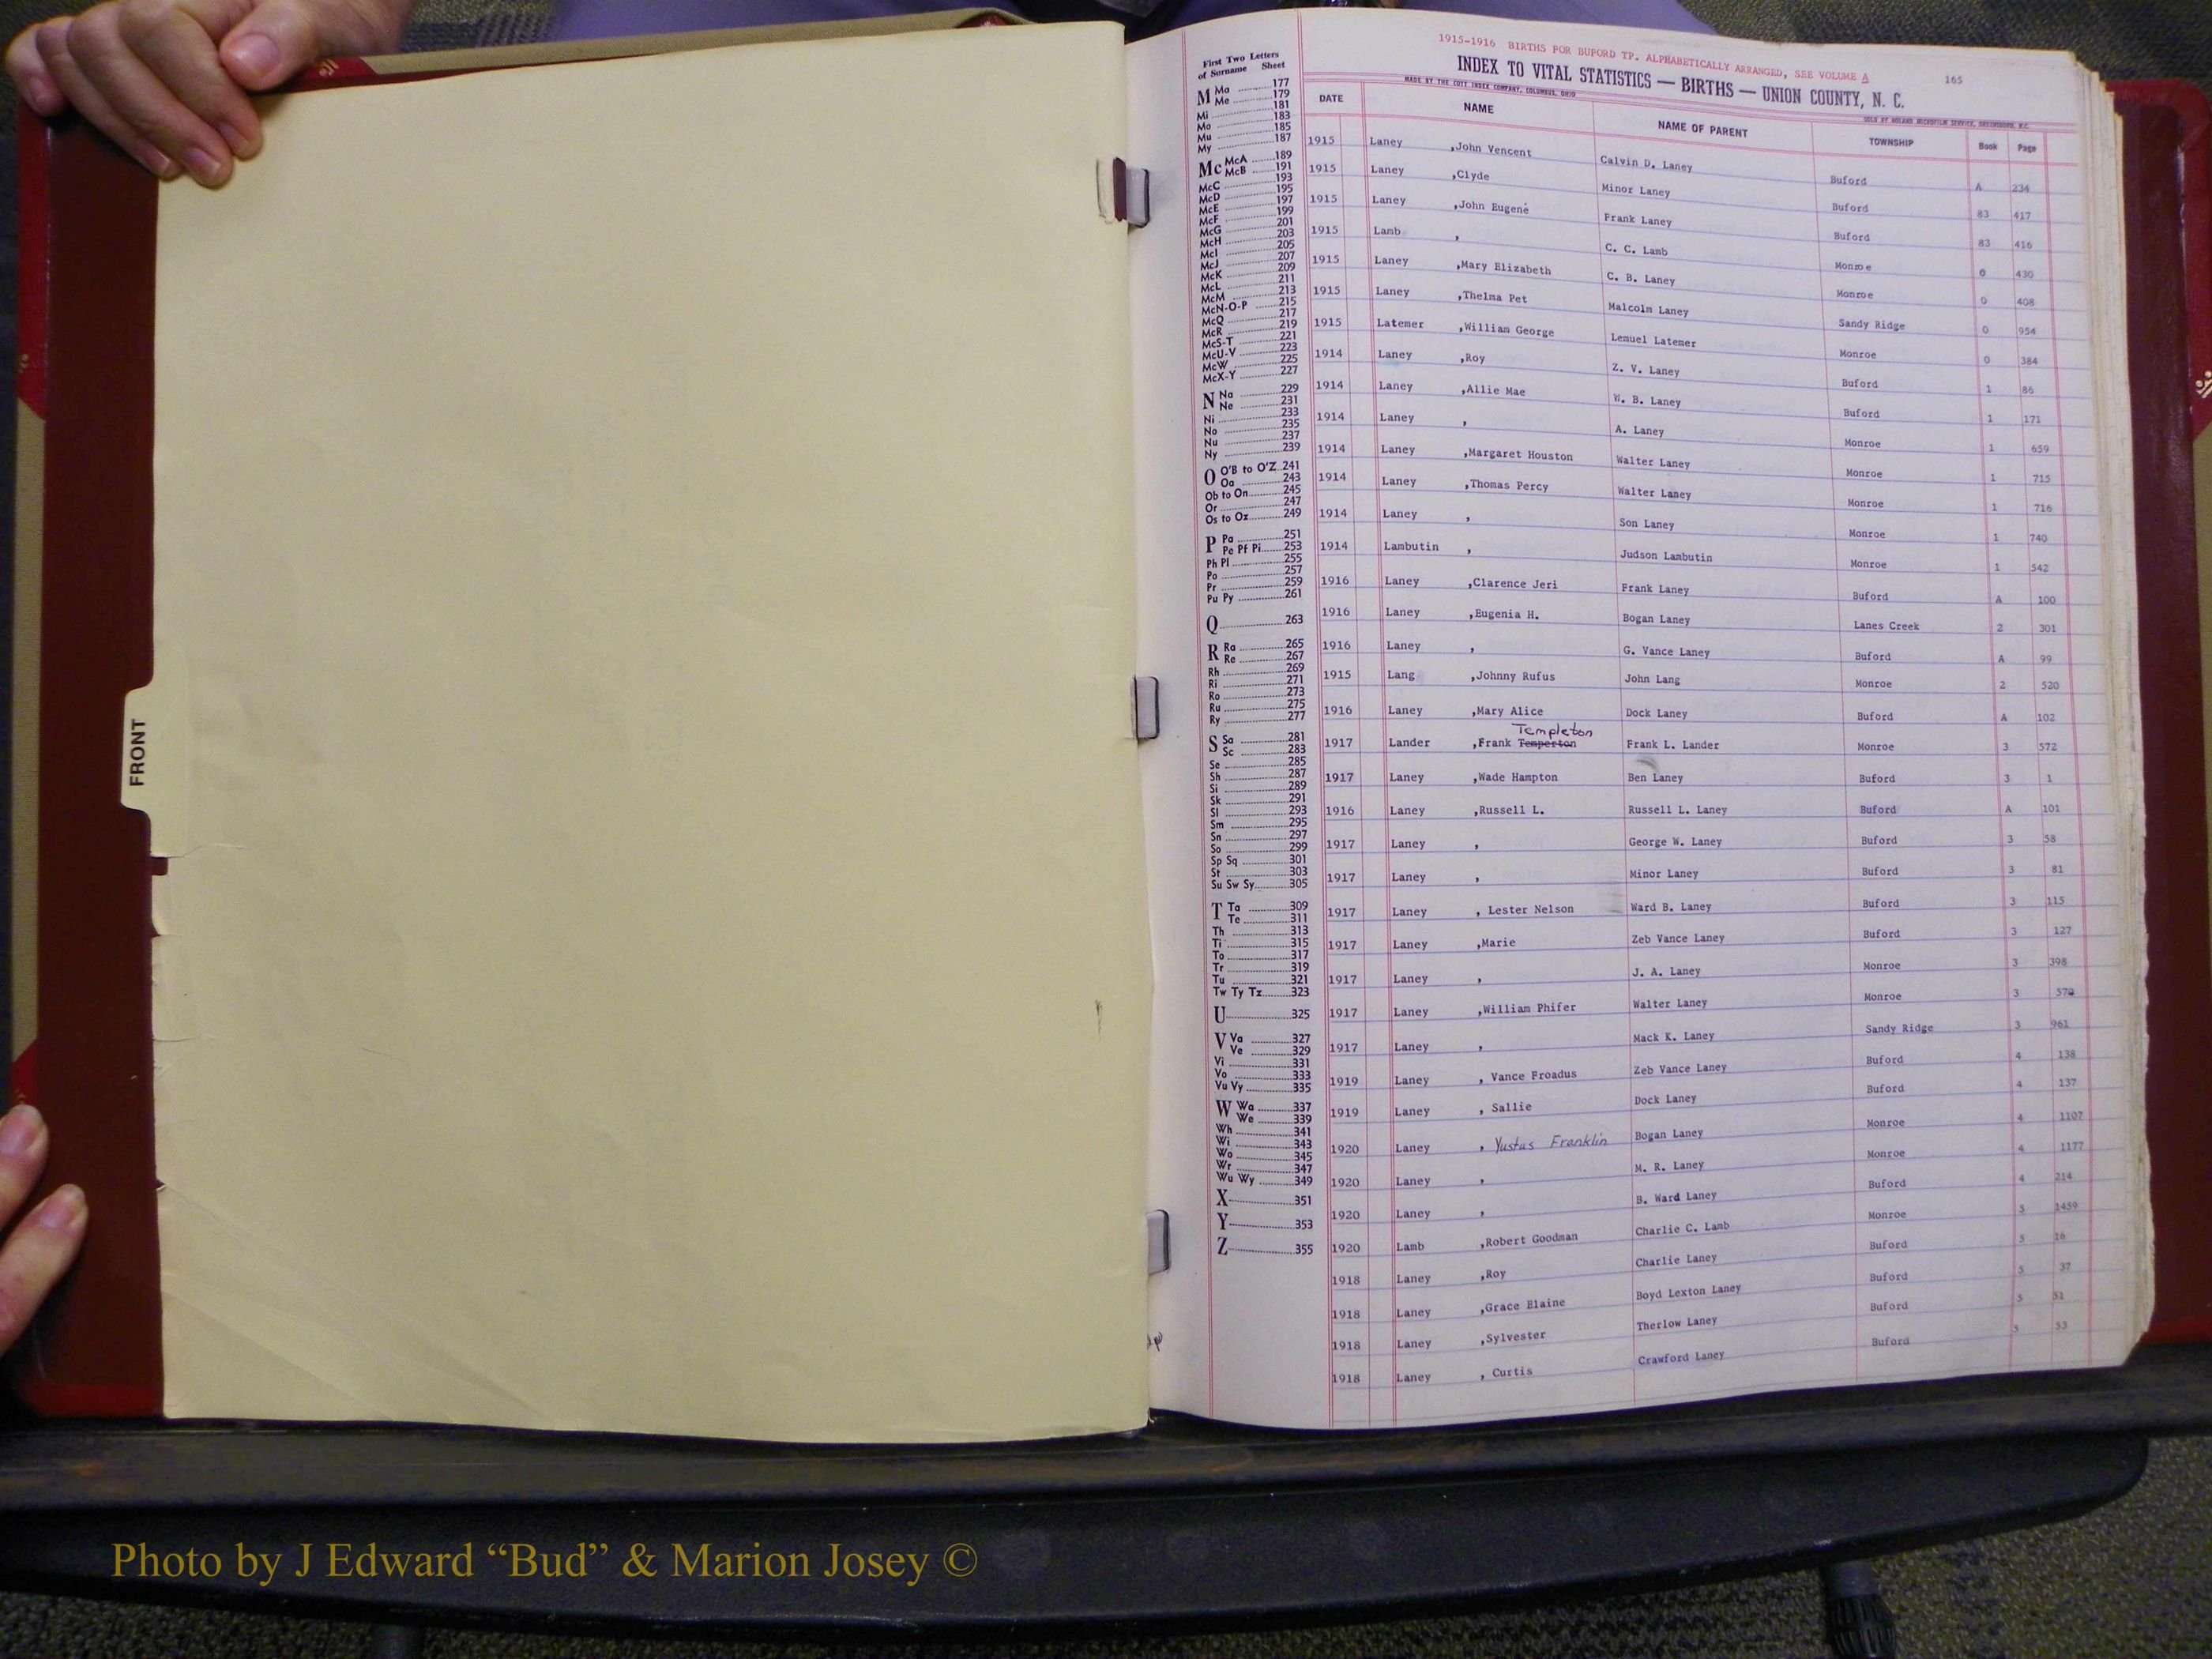 FRONT
First Two Letters
of Surname Sheet
M Ma 177
Me 179
Mi 181
Mo 183
Mu 185
My 187
Mc McA 189
McB 191
McC 193
McD 195
McE 197
McF 199
McG 201
McH 203
McI 205
McJ 207
McK 209
McL 211
McM 213
McN-O-P 215
McQ 217
McR 219
McS-T 221
McU-V 223
McW 225
McX-Y 227
N Na 229
Ne 231
Ni 233
No 235
Nu 237
Ny 239
O O'B to O'Z 241
Oa 243
Ob to On 245
Or 247
Os to Oz 249
P Pa 251
Pe Pf Pi 253
Ph Pl 255
Po 257
Pr 259
Pu Py 261
Q 263
R Ra 265
Re 267
Rh 269
Ri 271
Ro 273
Ru 275
Ry 277
S Sa 281
Sc 283
Se 285
Sh 287
Si 289
Sk 291
Sl 293
Sm 295
Sn 297
So 299
Sp Sq 301
St 303
Su Sw Sy 305
T Ta 309
Te 311
Th 313
Ti 315
To 317
Tr 319
Tu 321
Tw Ty Tz 323
U 325
V Va 327
Ve 329
Vi 331
Vo 333
Vu Vy 335
W Wa 337
We 339
Wh 341
Wi 343
Wo 345
Wr 347
Wu Wy 349
X 351
Y 353
Z 355
1915-1916 BIRTHS FOR BUFORD TP. ALPHABETICALLY ARRANGED, SEE VOLUME A 165
INDEX TO VITAL STATISTICS — BIRTHS — UNION COUNTY, N. C.
MADE BY THE COTT INDEX COMPANY, COLUMBUS, OHIO SOLD BY ROLAND MICROFILM SERVICE, GREENSBORO, N.C.
DATE NAME NAME OF PARENT TOWNSHIP Book Page
1915 Laney ,John Vencent Calvin D. Laney Buford A 234
1915 Laney ,Clyde Minor Laney Buford 83 417
1915 Laney ,John Eugene Frank Laney Buford 83 416
1915 Lamb , C. C. Lamb Monroe 0 430
1915 Laney ,Mary Elizabeth C. B. Laney Monroe 0 408
1915 Laney ,Thelma Pet Malcolm Laney Sandy Ridge 0 954
1915 Latemer ,William George Lemuel Latemer Monroe 0 384
1914 Laney ,Roy Z. V. Laney Buford 1 86
1914 Laney ,Allie Mae W. B. Laney Buford 1 171
1914 Laney , A. Laney Monroe 1 659
1914 Laney ,Margaret Houston Walter Laney Monroe 1 715
1914 Laney ,Thomas Percy Walter Laney Monroe 1 716
1914 Laney , Son Laney Monroe 1 740
1914 Lambutin , Judson Lambutin Monroe 1 542
1916 Laney ,Clarence Jeri Frank Laney Buford A 100
1916 Laney ,Eugenia H. Bogan Laney Lanes Creek 2 301
1916 Laney , G. Vance Laney Buford A 99
1915 Lang ,Johnny Rufus John Lang Monroe 2 520
1916 Laney ,Mary Alice Dock Laney Buford A 102
Templeton
1917 Lander ,Frank Temperton Frank L. Lander Monroe 3 572
1917 Laney ,Wade Hampton Ben Laney Buford 3 1
1916 Laney ,Russell L. Russell L. Laney Buford A 101
1917 Laney , George W. Laney Buford 3 58
1917 Laney , Minor Laney Buford 3 81
1917 Laney , Lester Nelson Ward B. Laney Buford 3 115
1917 Laney ,Marie Zeb Vance Laney Buford 3 127
1917 Laney , J. A. Laney Monroe 3 398
1917 Laney ,William Phifer Walter Laney Monroe 3
1917 Laney , Mack K. Laney Sandy Ridge 3 961
1919 Laney , Vance Froadus Zeb Vance Laney Buford 4 138
1919 Laney , Sallie Dock Laney Buford 4 137
1920 Laney , Yustus Franklin Bogan Laney Monroe 4 1107
1920 Laney , M. R. Laney Monroe 4 1177
1920 Laney , B. Ward Laney Buford 4 214
1920 Lamb ,Robert Goodman Charlie C. Lamb Monroe 5 1459
1918 Laney ,Roy Charlie Laney Buford 5 16
1918 Laney ,Grace Elaine Boyd Lexton Laney Buford 5 37
1918 Laney ,Sylvester Therlow Laney Buford 5 51
1918 Laney , Curtis Crawford Laney Buford 5 53
Photo by J Edward “Bud” & Marion Josey ©